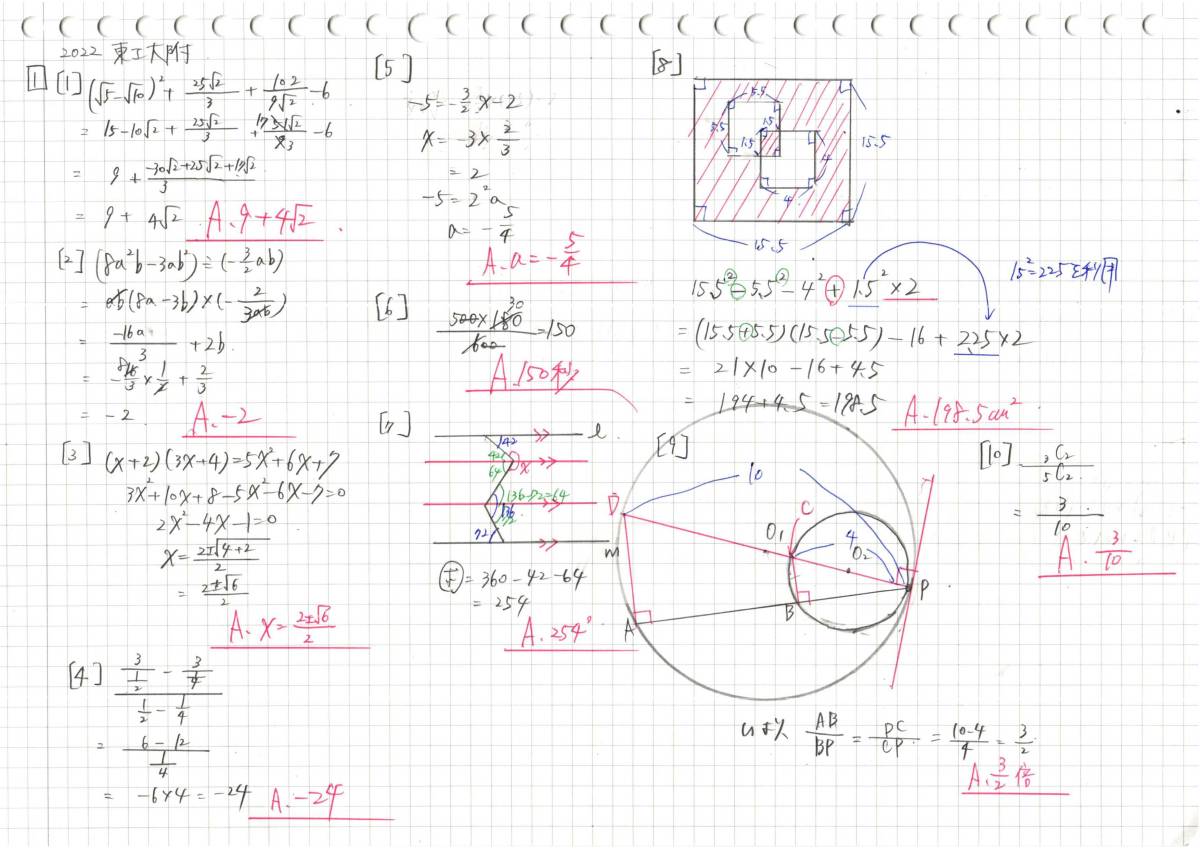 2022 東工大附
1
[1] (√5-√10)² + 25√2/3 + 102/9√2 - 6
= 15-10√2 + 25√2/3 + 17 51√2/9 3 - 6
= 9 + (-30√2+25√2+17√2)/3
= 9 + 4√2 A. 9+4√2
[2] (8a²b-3ab²)÷(-3/2ab)
= ab(8a-3b)×(-2/3ab)
= -16a/3 + 2b
= -16/3 × 1/2 + 2/3
= -2 A. -2
[3] (x+2)(3x+4)=5x²+6x+7
3x²+10x+8-5x²-6x-7=0
2x²-4x-1=0
x = (2±√4+2)/2
= (2±√6)/2
A. x = (2±√6)/2
[4] (3/(1/2) - 3/(1/4))/(1/2 - 1/4)
= (6-12)/(1/4)
= -6×4 = -24 A. -24
[5]
-5 = -3/2 x - 2
x = -3 × 2/3
= 2
-5 = 2²a
a = -5/4
A. a = -5/4
[6] 500×180/600 = 150
30
A. 150
[7]
l
142
42
x
64
136-72=64
136
72
72
m
= 360-42-64
= 254
A. 254°
[8]
5.5
5.5
1.5
1.5
4
4
15.5
15.5
15.5²-5.5²-4²+1.5²×2
15²=225を利用
= (15.5+5.5)(15.5-5.5)-16+2.25×2
= 21×10-16+4.5
= 194+4.5=198.5 A. 198.5cm²
[9]
10
D
C
O₁
4
O₂
P
B
A
AB/BP = DC/CP = (10-4)/4 = 3/2
A. 3/2倍
[10] ₃C₂/₅C₂
= 3/10
A. 3/10